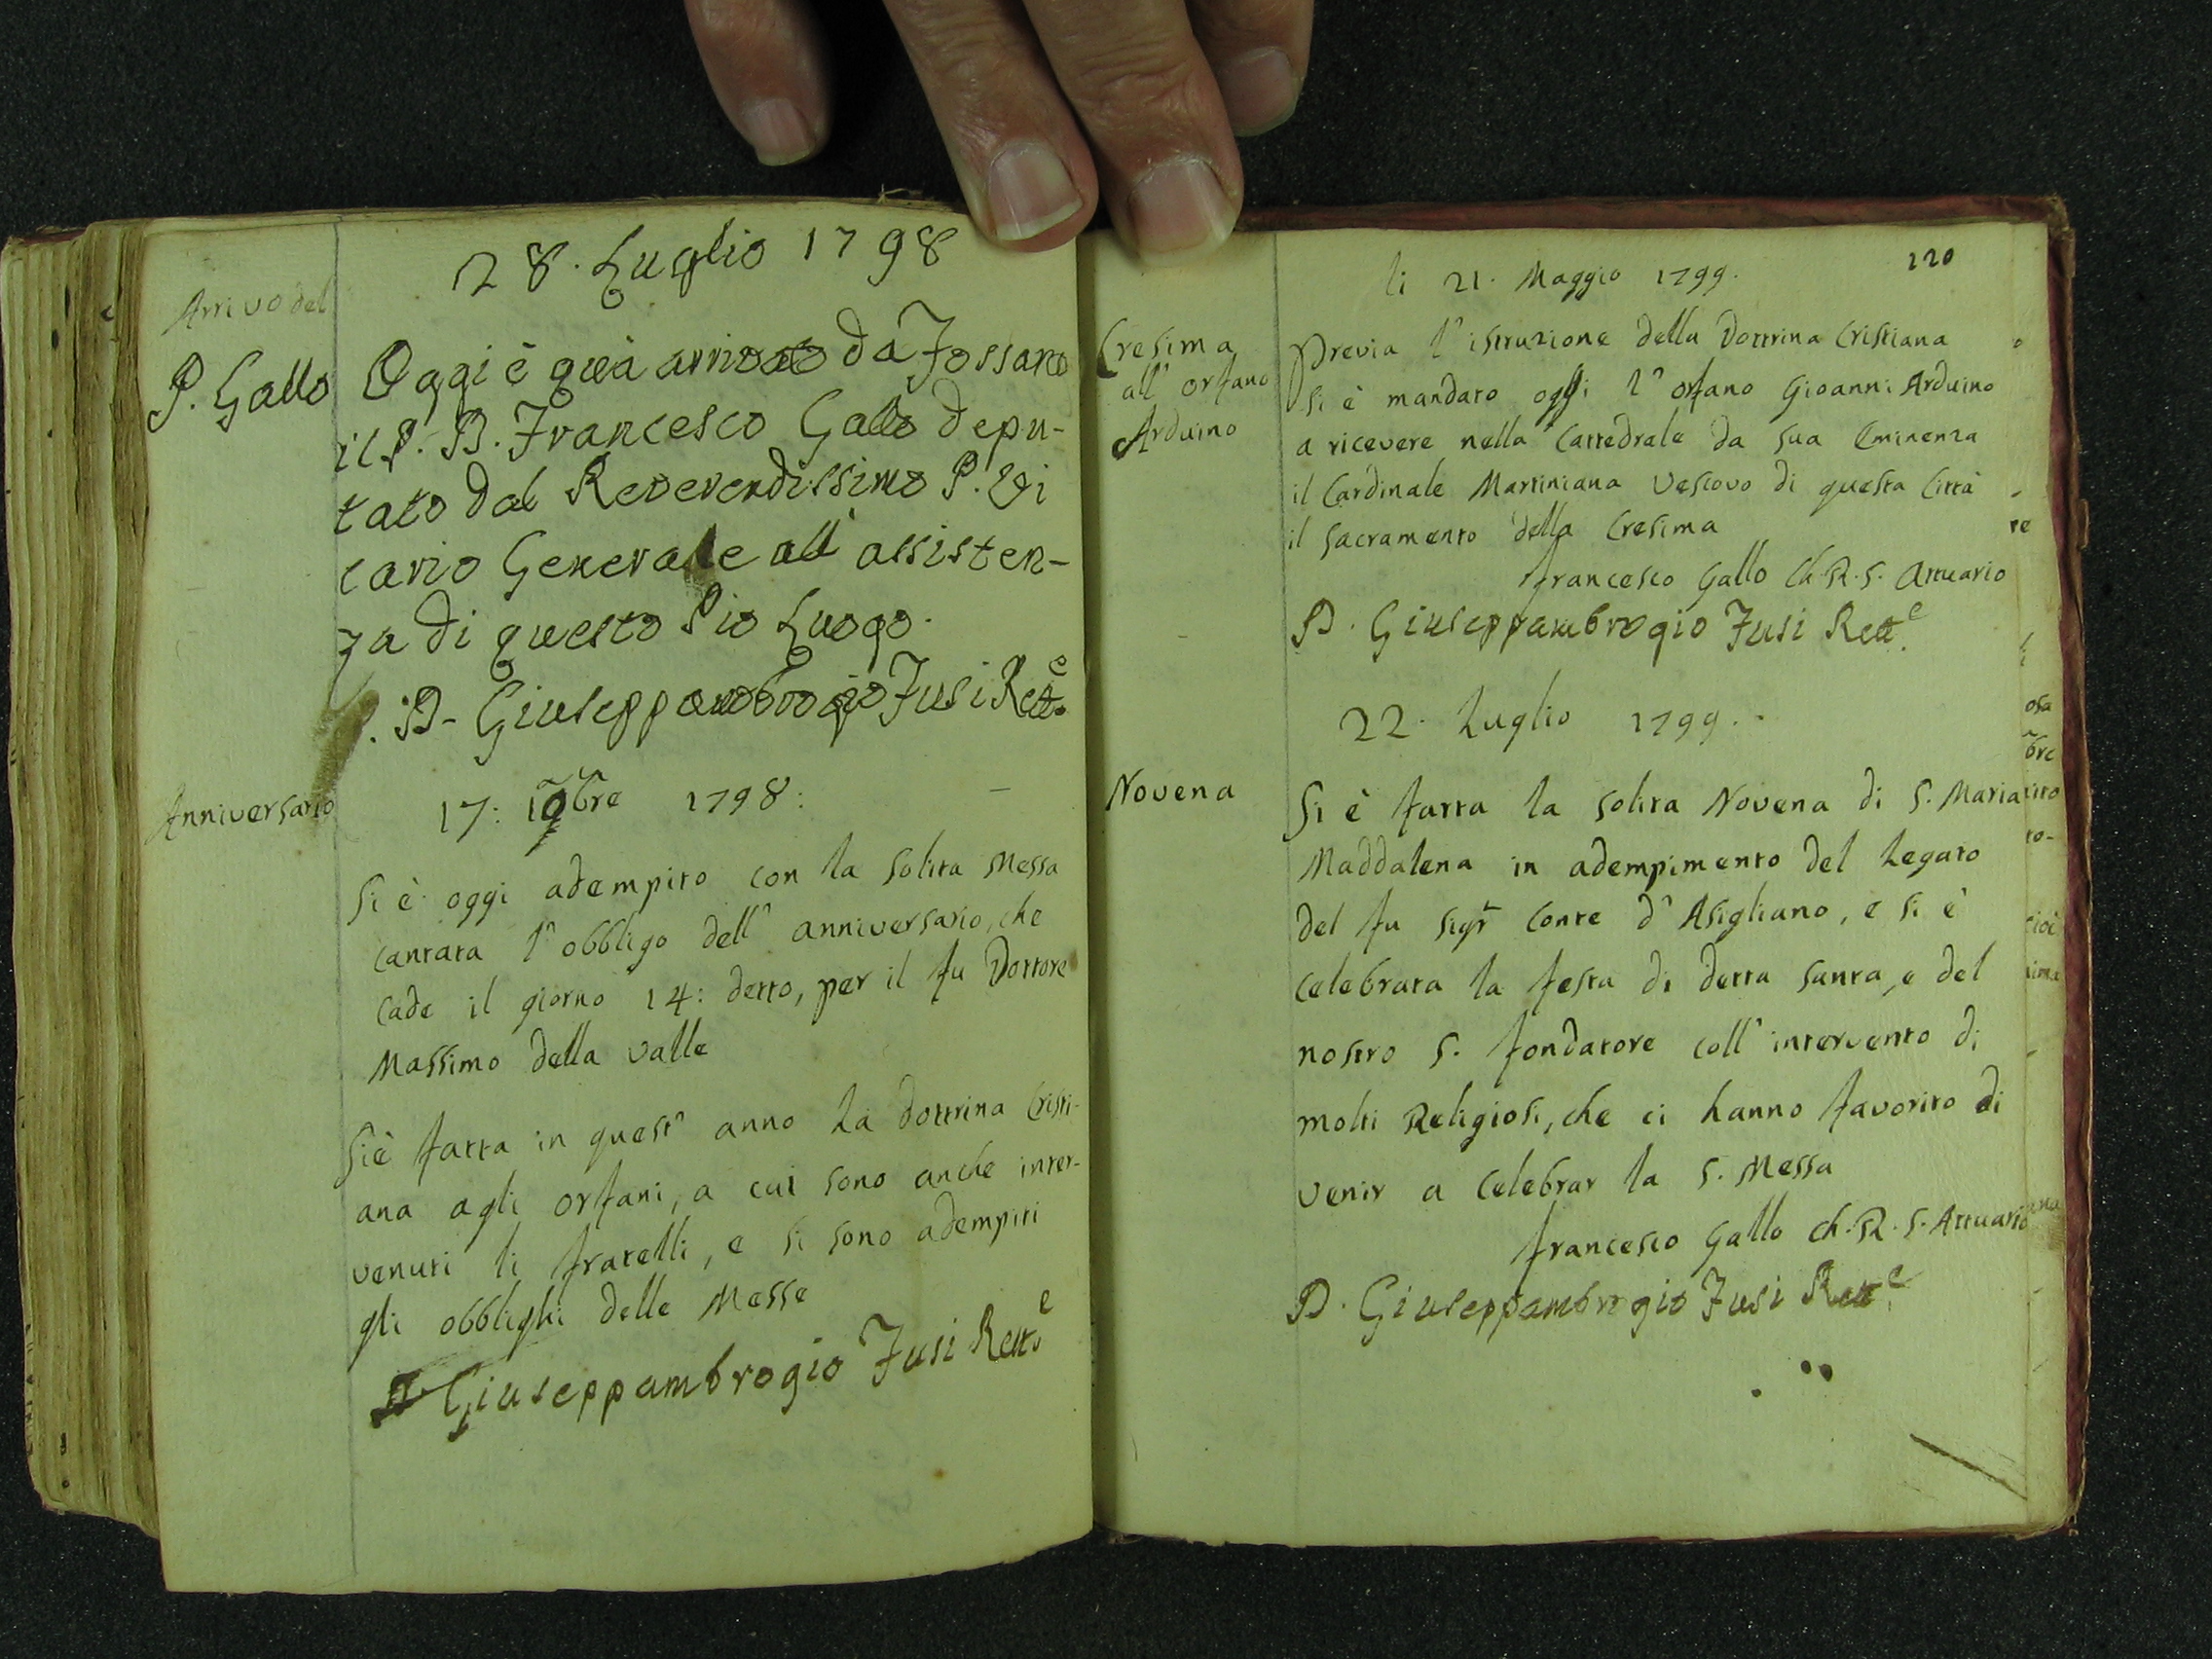 28. Luglio 1798
Arrivo del
P. Gallo
Oggi è quà arrivato da Fossano
il P. D. Francesco Gallo depu-
tato dal Reverendissimo P. Vi
cario Generale all' assisten-
za di questo Pio Luogo.
D. Giuseppambrogio Fusi Rett.e
Anniversario
17: 10bre 1798:
Si è oggi adempito con la solita Messa
cantata l'obbligo dell' anniversario, che
cade il giorno 14: detto, per il fu Dottore
Massimo della valle
Si è fatta in quest' anno la dottrina Cristi-
ana agli orfani, a cui sono anche inter-
venuti li fratelli, e si sono adempiti
gli obblighi delle Messe
D. Giuseppambrogio Fusi Rett.e
120
li 21. Maggio 1799.
Cresima
all' orfano
Arduino
Previa l'istruzione della Dottrina Cristiana
si è mandato oggi l'orfano Gioanni Arduino
a ricevere nella Cattedrale da sua Eminenza
il Cardinale Martiniana Vescovo di questa Città
il sacramento della Cresima
francesco Gallo Ch. R. S. Attuario
D. Giuseppambrogio Fusi Rett.e
22. Luglio 1799.
Novena
Si è fatta la solita Novena di S. Maria
Maddalena in adempimento del Legato
del fu sigr Conte d'Asigliano, e si è
celebrata la festa di detta santa, e del
nostro S. fondatore coll' intervento di
molti Religiosi, che ci hanno favorito di
venir a celebrar la S. Messa
francesco Gallo Ch. R. S. Attuario
D. Giuseppambrogio Fusi Rett.e